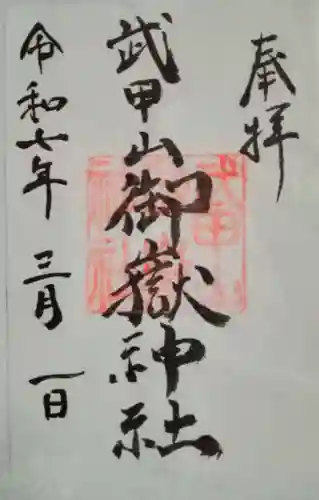 奉拝
武甲山御嶽神社
令和七年三月一日